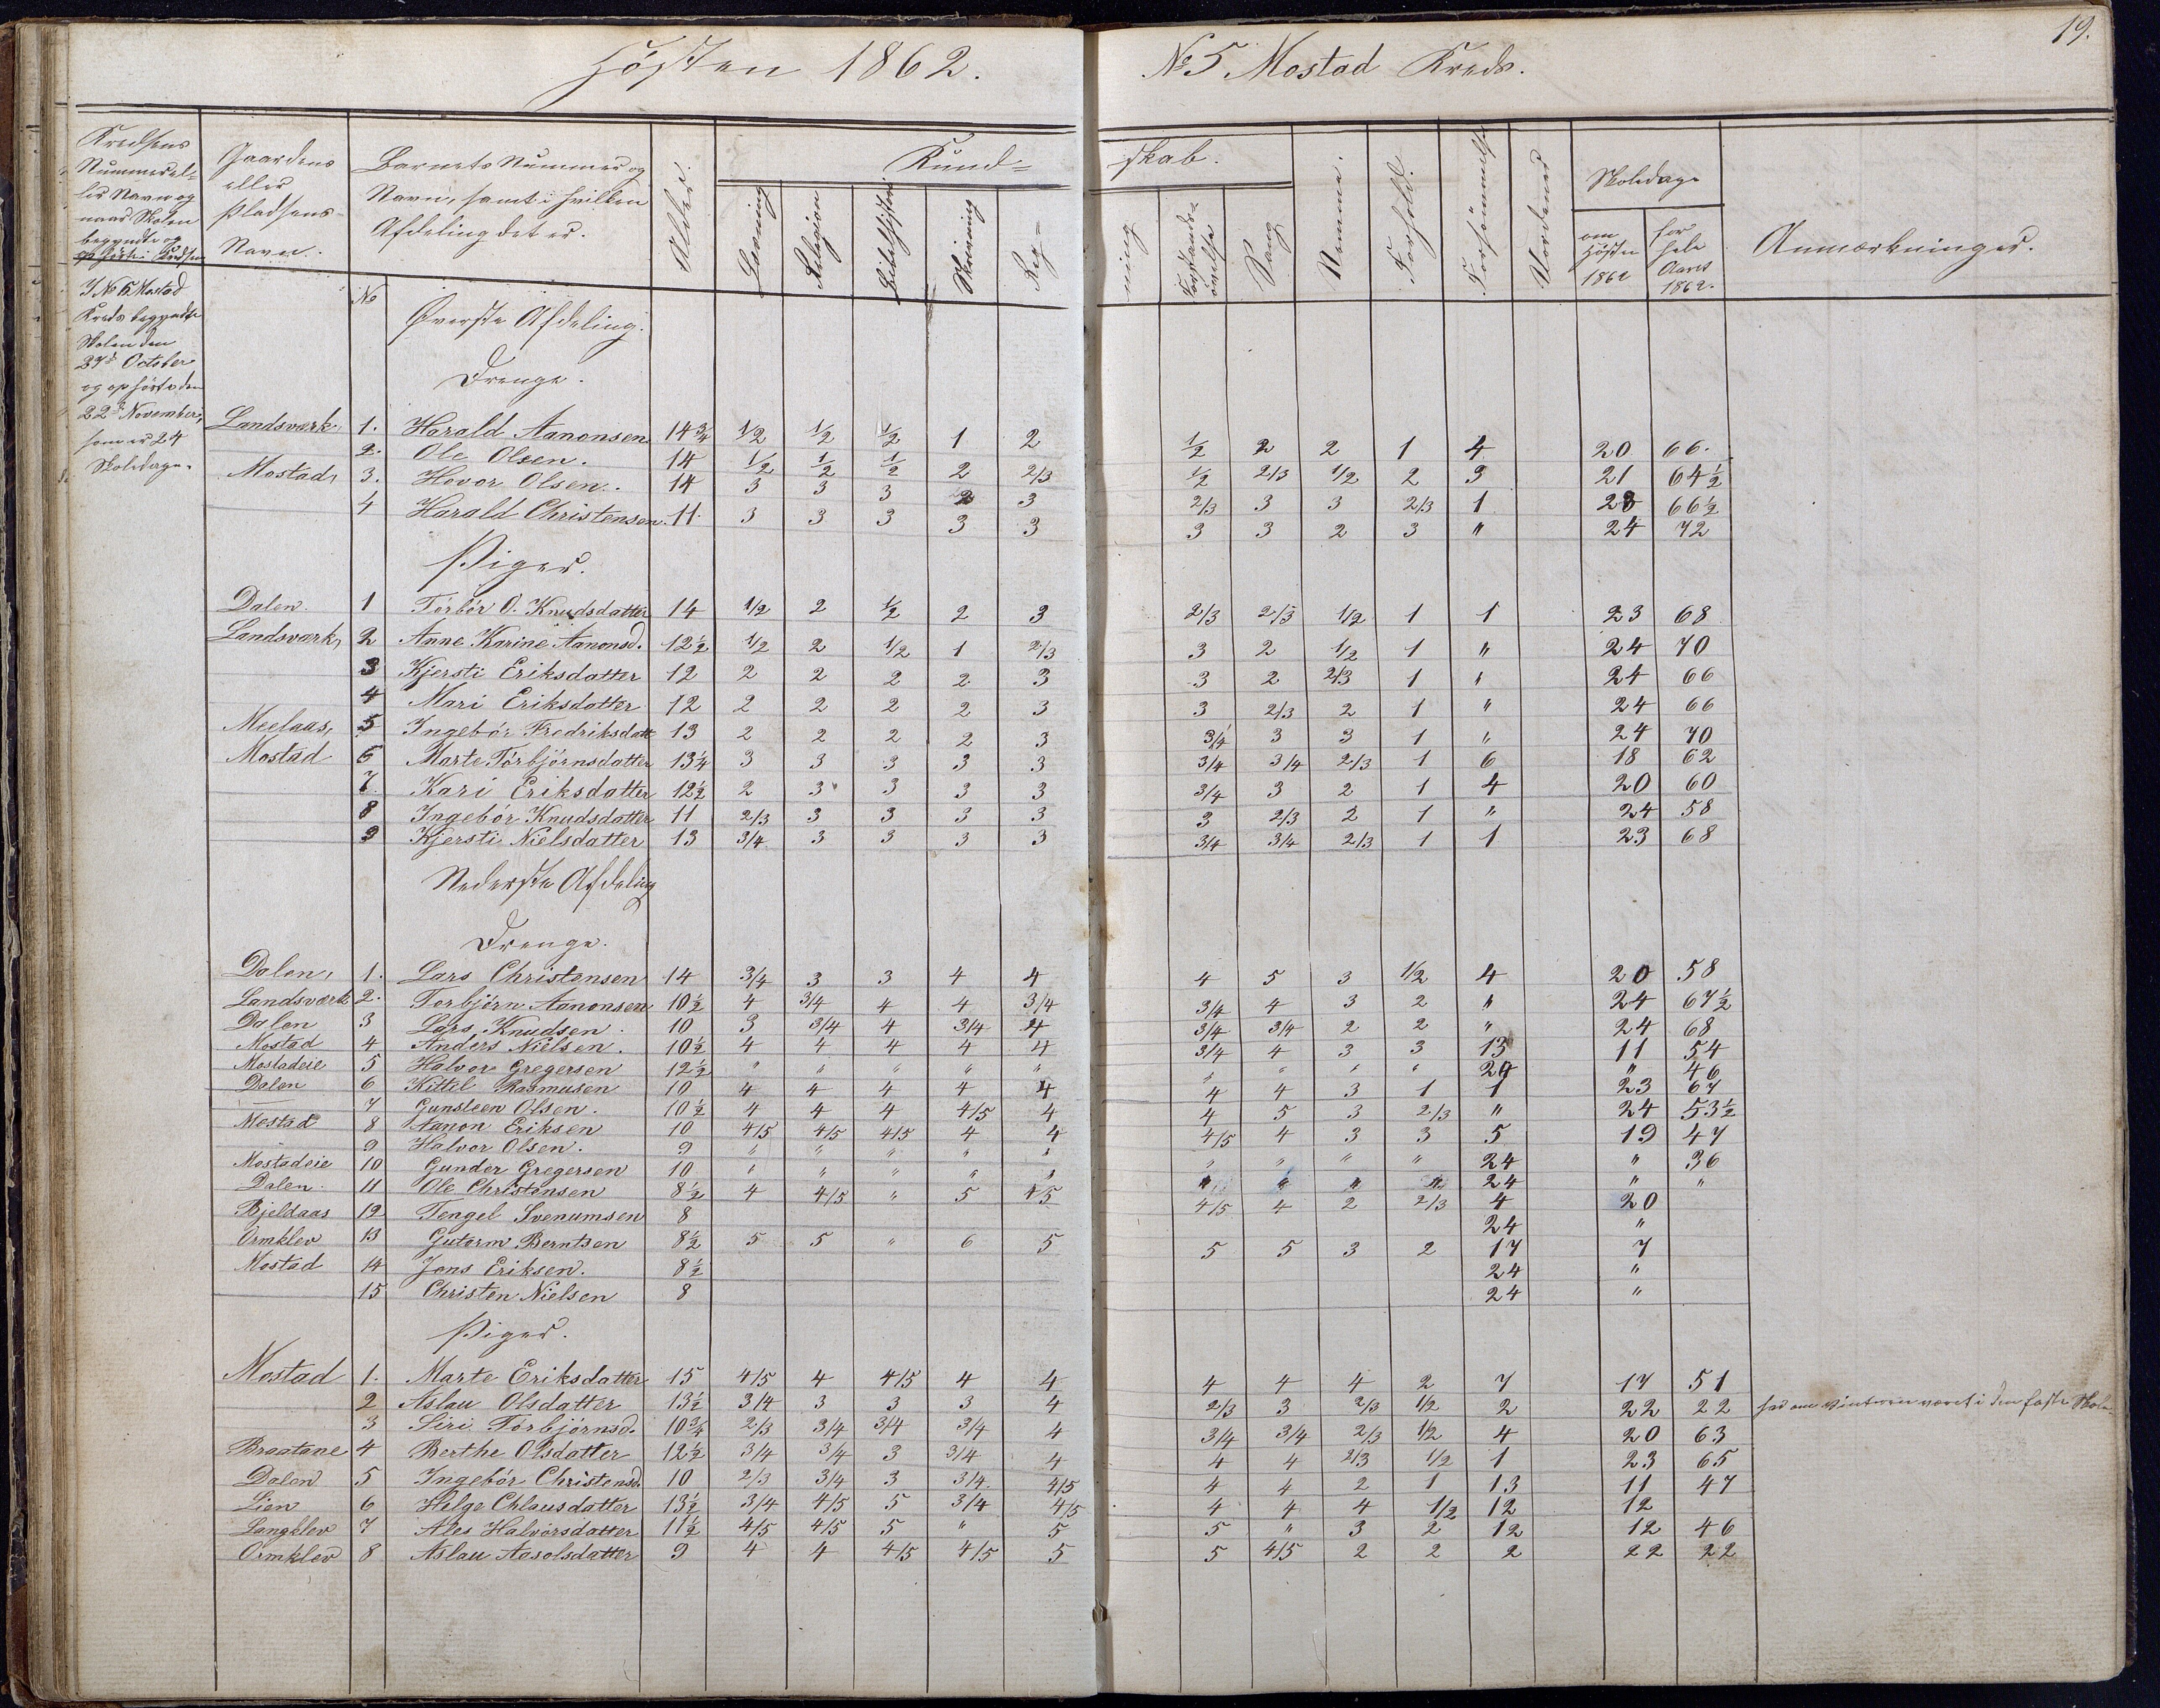 Hösten 1862. No 5 Mostad Kreds. 19.
Kredsens Nummer eller Navn og naar Skolen begyndte og ophörte i Kredsen | Gaardens eller Pladsens Navn. | Barnets Nummer og Navn, samt i hvilken Afdeling det er. | Alder. | Kundskab. | Nemme. | Forhold. | Forsömmelser | Skoledage | Anmærkninger.
Læsning | Religion | Bibelhistorie | Skrivning | Regning | Forstandsövelse | Sang | om Hösten 1862 | for hele Aaret 1862.
I No 5 Mostad
Kreds begyndte
Skolen den
27de October
og ophörte den
22de November,
som er 24
Skoledage.
No Överste Afdeling.
Drenge.
Landsværk. 1. Harald Aanonsen 14 3/4 1/2 1/2 1/2 1 2 1/2 2 2 1 4 20 66.
2. Ole Olsen. 14 1/2 1/2 1/2 2 2/3 1/2 2/3 1/2 2 3 21 64 1/2
Mostad, 3. Hovor Olsen. 14 3 3 3 2 3 2/3 3 3 2/3 1 23 66 1/2
4 Harald Christensen. 11. 3 3 3 3 3 3 3 2 3 " 24 72
Piger.
Dalen. 1 Törbör O. Knudsdatter 14 1/2 2 1/2 2 3 2/3 2/3 1/2 1 1 23 68
Landsværk, 2 Anne Karine Aanonsd. 12 1/2 1/2 2 1/2 1 2/3 3 2 1/2 1 " 24 70
3 Kjersti Eriksdatter 12 2 2 2 2 3 3 2 2/3 1 " 24 66
4 Mari Eriksdatter 12 2 2 2 2 3 3 2/3 2 1 " 24 66
Meelaas, 5 Ingebör Fredriksdatt 13 2 2 2 2 3 3/4 3 3 1 " 24 70
Mostad 6 Marte Törbjörnsdatter 13 1/4 3 3 3 3 3 3/4 3/4 2/3 1 6 18 62
7. Kari Eriksdatter 12 1/2 2 3 3 3 3 3/4 3 2 1 4 20 60
8 Ingebör Knudsdatter 11 2/3 3 3 3 3 3 2/3 2 1 " 24 58
9 Kjersti Nielsdatter 13 3/4 3 3 3 3 3/4 3/4 2/3 1 1 23 68
Nederste Afdeling
Drenge.
Dalen, 1. Lars Christensen 14 3/4 3 3 4 4 4 5 3 1/2 4 20 58
Landsværk 2. Torbjörn Aanonsen 10 1/2 4 3/4 4 4 3/4 3/4 4 3 2 " 24 67 1/2
Dalen 3 Lars Knudsen. 10 3 3/4 4 3/4 4 3/4 3/4 2 2 " 24 68
Mostad 4 Anders Nielsen. 10 1/2 4 4 4 4 4 3/4 4 3 3 13 11 54
Mostadeie 5 Halvor Gregersen 12 1/2 " " " " " " " " " 24 " 46
Dalen 6 Kittil Rasmusen 10 4 4 4 4 4 4 4 3 1 1 23 67
7 Gunsteen Olsen. 10 1/2 4 4 4 4/5 4 4 5 3 2/3 " 24 53 1/2
Mostad 8 Aanon Eriksen 10 4/5 4/5 4/5 4 4 4/5 4 3 3 5 19 47
9 Halvor Olsen. 9 " " " " " " " " " 24 " 36
Mostadeie 10 Gunder Gregersen 10 " " " " " " " " " 24 " "
Dalen. 11 Ole Christensen 8 1/2 4 4/5 " 5 4/5 4/5 4 2 2/3 4 20
Bjeldaas 12 Tengel Svenumsen 8 24 "
Ormklev 13 Gutorm Berntsen 8 1/2 5 5 " 6 5 5 5 3 2 17 7
Mostad 14 Jens Eriksen. 8 1/2 24 "
15 Christen Nielsen 8 24 "
Piger.
Mostad 1. Marte Eriksdatter 15 4/5 4 4/5 4 4 4 4 4 2 7 17 51
2 Aslau Olsdatter 13 1/2 3/4 3 3 3 4 2/3 3 2/3 1/2 2 22 22 har om Vinteren været i den faste Skole.
3 Siri Törbjörnsd. 10 3/4 2/3 3/4 3/4 3/4 4 3/4 3/4 2/3 1/2 4 20 63
Braatane 4 Berthe Olsdatter 12 1/2 3/4 3/4 3 3/4 4 4 4 2/3 1/2 1 23 65
Dalen 5 Ingebör Christensd. 10 2/3 3/4 3 3/4 4/5 4 4 2 1 13 11 47
Lien 6 Helge Chlausdatter 13 1/2 3/4 4/5 5 3/4 4/5 4 4 4 1/2 12 12
Langklev 7 Ales Halvorsdatter 11 1/2 4/5 4/5 5 " 5 5 " 3 2 12 12 46
Ormklev 8 Aslau Aasolsdatter 9 4 4 4/5 4/5 5 5 4/5 2 2 2 22 22